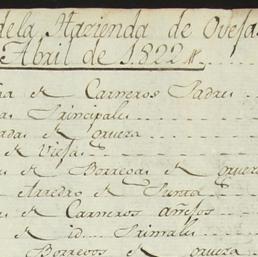 de la Hazienda de Ovejas
Abril de 1822
de Carneros Padres
as Principales
adas de
de Viejas
de Borregas de
Arredro de Punta
de Carneros añejos
de id. Primales
Borregos de